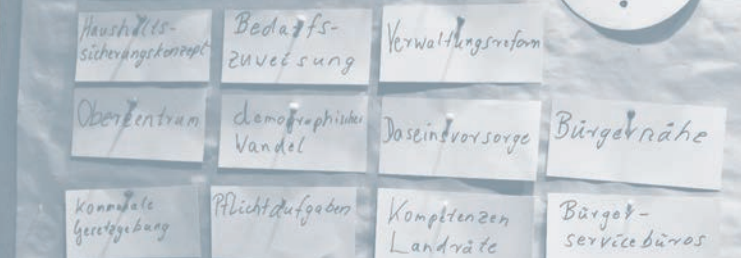 Haushalts-
sicherungskonzept
Bedarfs-
zuweisung
Verwaltungsreform
Oberzentrum
demographischer
Wandel
Daseinsvorsorge
Bürgernähe
Kommunale
Gesetzgebung
Pflichtaufgaben
Kompetenzen
Landräte
Bürger-
servicebüros